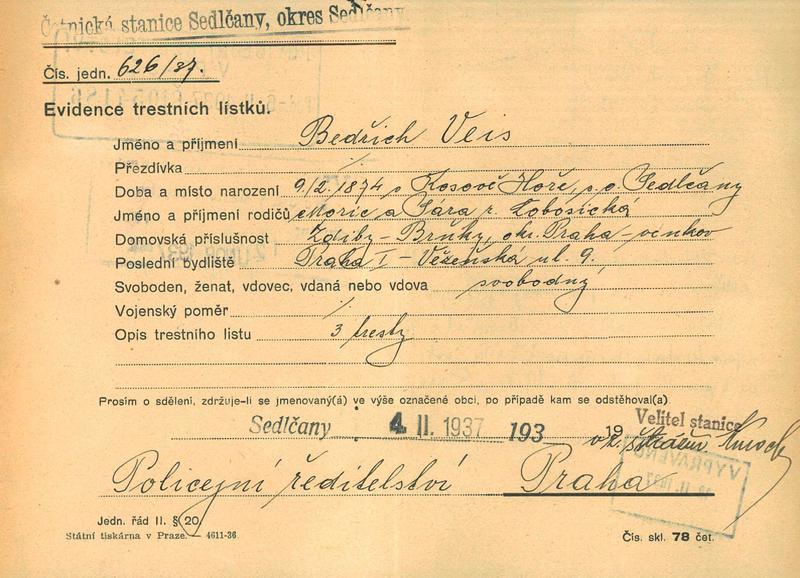 Četnická stanice Sedlčany, okres Sedlčany.
Čís. jedn. 626/37.
Evidence trestních lístků.
Jméno a příjmení Bedřich Veis
Přezdívka /.
Doba a místo narození 9./2. 1874 v Kosově Hoře, s. o. Sedlčany
Jméno a příjmení rodičů Moric a Sára r. Lobosická
Domovská příslušnost Zdiby - Brnky, okr. Praha - venkov
Poslední bydliště Praha I - Vězenská ul. 9.
Svoboden, ženat, vdovec, vdaná nebo vdova svobodný
Vojenský poměr /.
Opis trestního listu 3 tresty
Prosím o sdělení, zdržuje-li se jmenovaný(á) ve výše označené obci, po případě kam se odstěhoval(a).
Sedlčany 4. II. 1937 193 19
Velitel stanice
Policejní ředitelství Praha
VYPRAVENO
Jedn. řád II. § 20.
Státní tiskárna v Praze. — 4611-36.
Čís. skl. 78 čet.